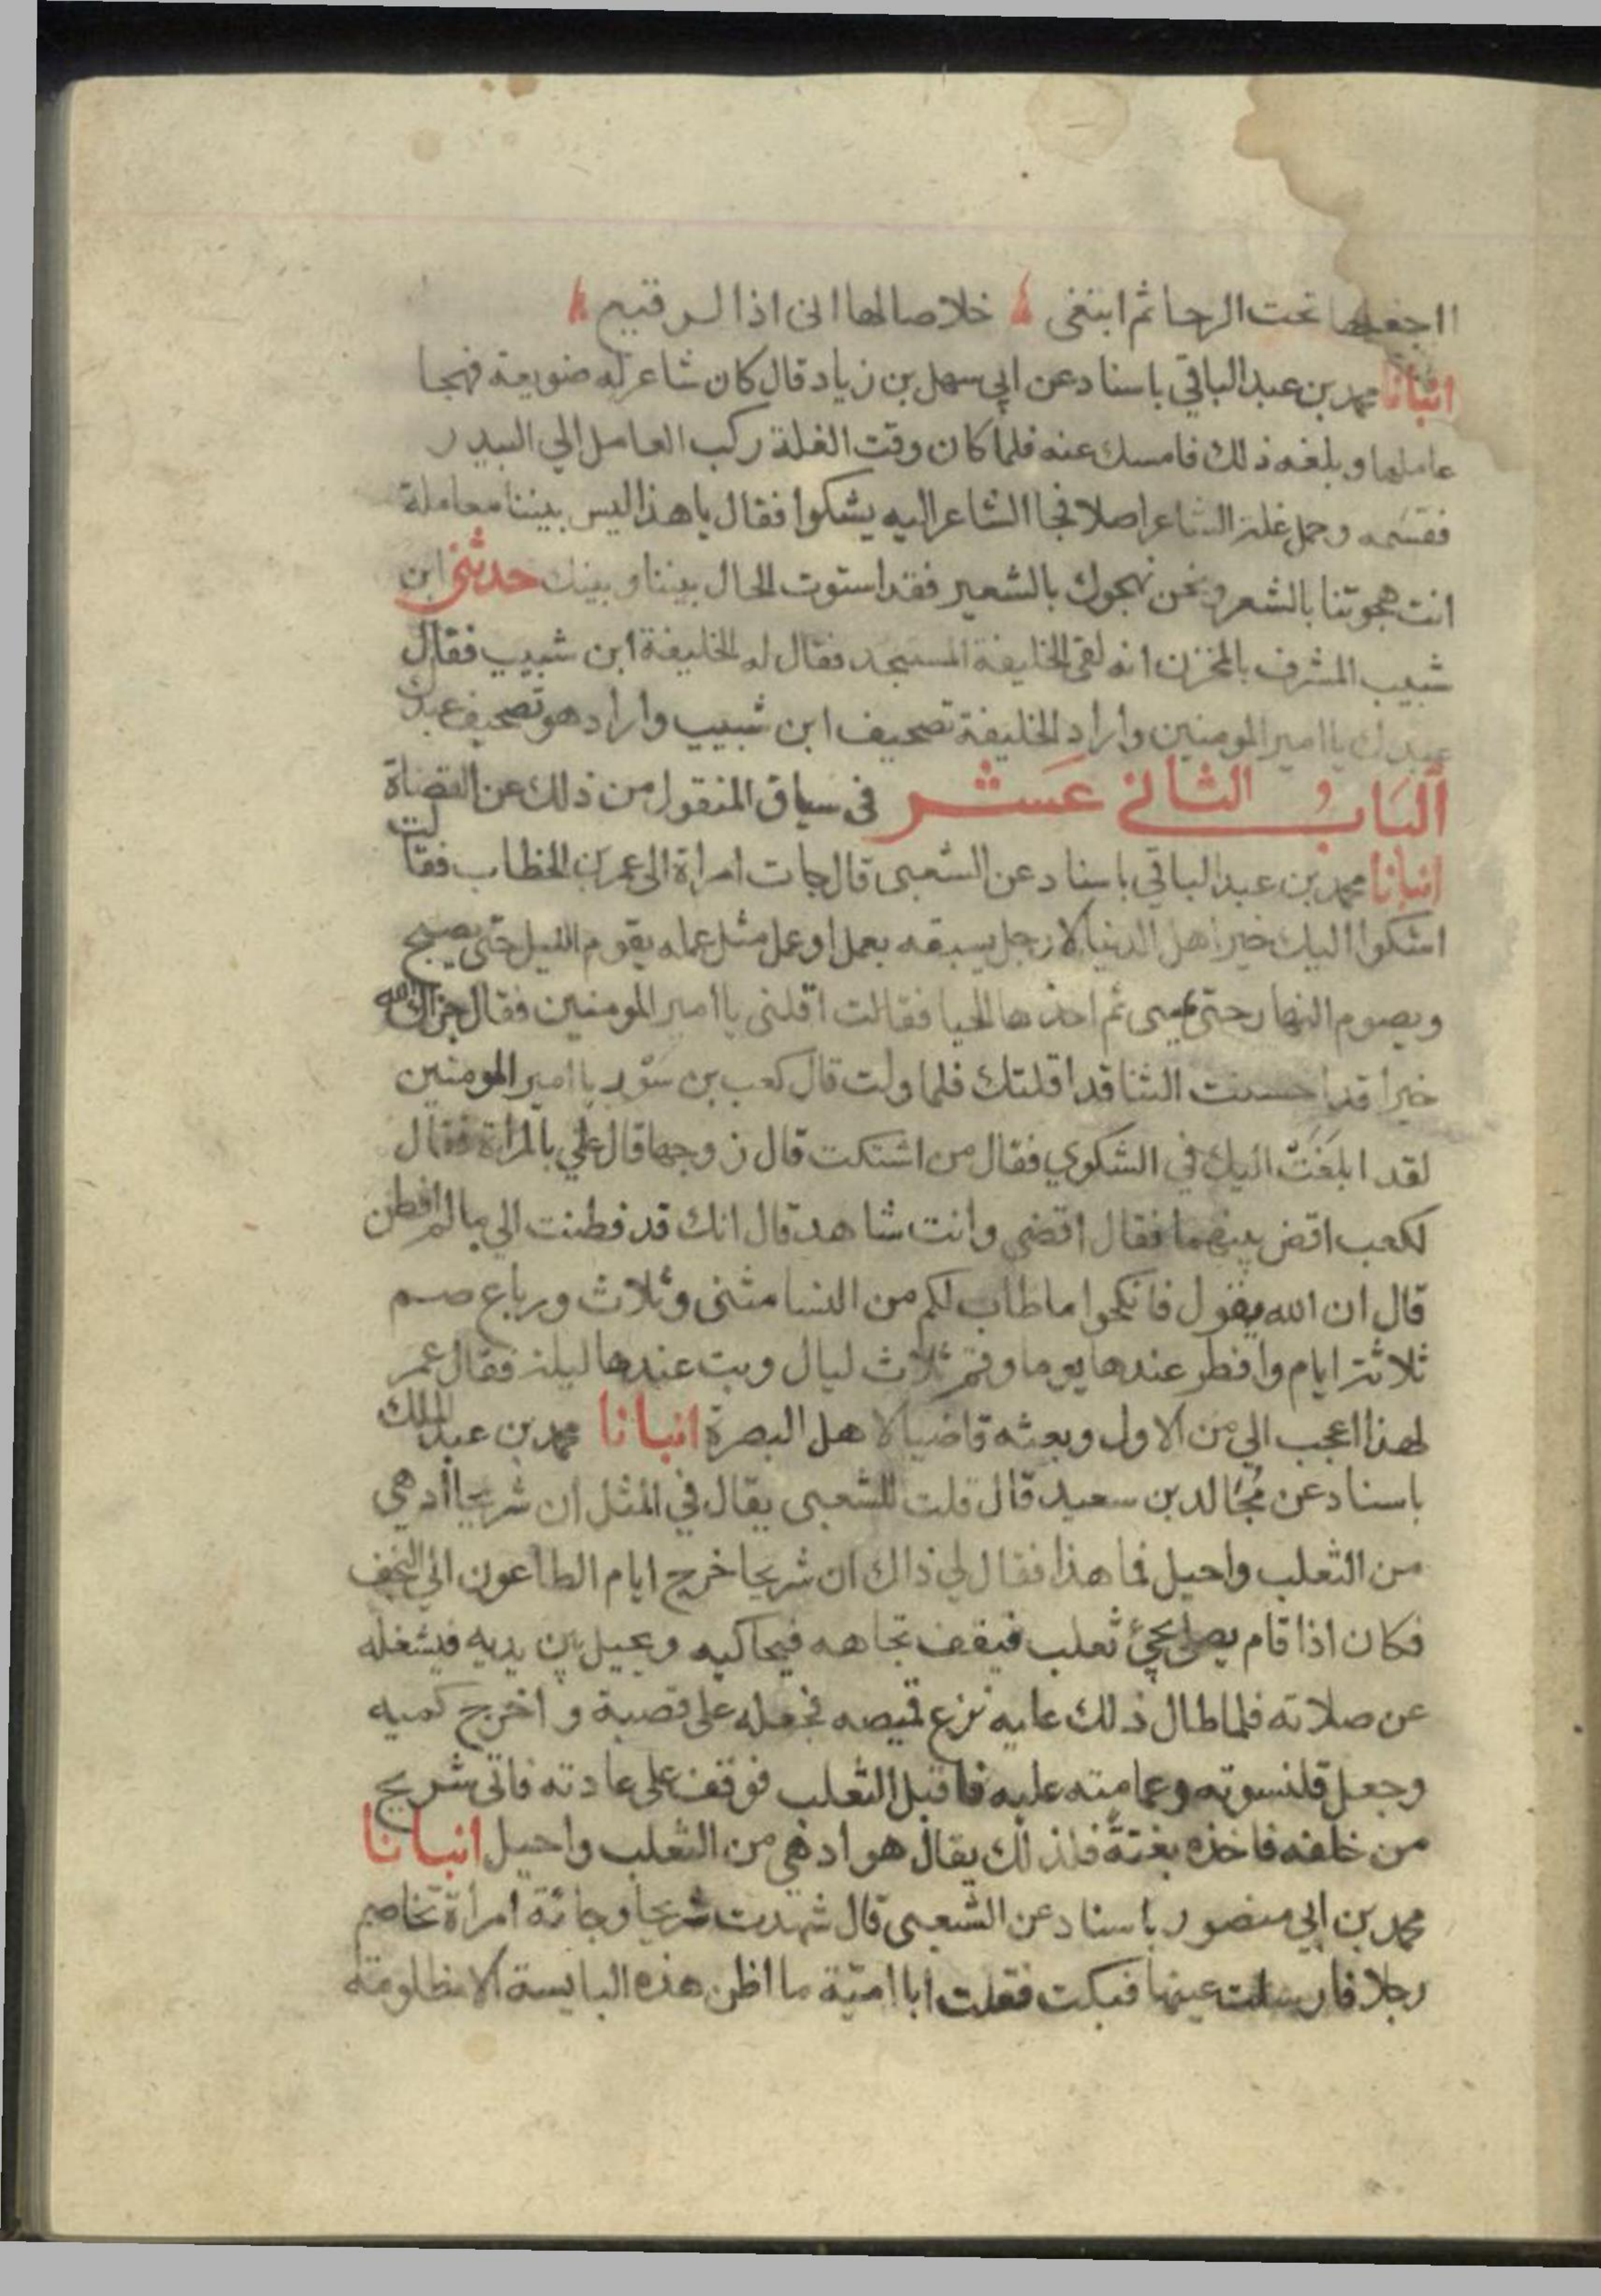 ااجعلها تحت الرحا ثم ابتغى خلاصا لها انى اذا لرقيع
انبانا محمد بن عبد الباقي باسناد عن ابي سهل بن زياد قال كان شاعر له ضويعة فهجا
عاملها وبلغه ذلك فامسك عنه فلما كان وقت الغلة ركب العامل الي البيدر
فقسمه وحمل غلة الشاعر اصلا فجا الشاعر اليه يشكوا فقال يا هذا ليس بيننا معاملة
انت هجوتنا بالشعر ونحن نهجوك بالشعير فقد استوت الحال بيننا وبينك حدثني ابن
شبيب المشرف بالمخزن انه لقى الخليفة المستنجد فقال له الخليفة ابن شبيب فقال
عبدك يا امير المومنين واراد الخليفة تصحيف ابن شبيب واراد هو تصحيف عبدك
الباب الثاني عشر في سياق المنقول من ذلك عن القضاة
انبانا محمد بن عبد الباقي باسناد عن الشعبى قال جات امراة الى عمر بن الخطاب فقالت
اشكوا اليك خير اهل الدنيا الا رجل يسبقه بعمل او عمل مثل عمله يقوم الليل حتى يصبح
ويصوم النهار حتى يمسى ثم اخذها الحيا فقالت اقلنى يا امير المومنين فقال جزاك الله
خيرا قد احسنت الثنا قد اقلتك فلما ولت قال كعب بن سور يا امير المومنين
لقد ابلغت اليك في الشكوي فقال من اشتكت قال زوجها قال علي بالمراة فقال
لكعب اقض بينهما فقال اقضى وانت شاهد قال انك قد فطنت الي ما لم افطن
قال ان الله يقول فانكحوا ما طاب لكم من النسا مثنى وثلاث ورباع صم
ثلاثة ايام وافطر عندها يوما وقم ثلاث ليال وبت عندها ليلة فقال عمر
لهذا اعجب الي من الاول وبعثه قاضيا لاهل البصرة انبانا محمد بن عبد الملك
باسناد عن مجالد بن سعيد قال قلت للشعبى يقال في المثل ان شريحا أدهي
من الثعلب واحيل فما هذا فقال لي ذاك ان شريحا خرج ايام الطاعون الي النجف
فكان اذا قام يصلى يجئ ثعلب فيقف تجاهه فيحاكيه ويحيل بين يديه فيشغله
عن صلاته فلما طال ذلك عليه نزع قميصه فجعله على قصبة واخرج كميه
وجعل قلنسوته وعمامته عليه فاقبل الثعلب فوقف على عادته فاتى شريح
من خلفه فاخذه بغتة فلذلك يقال هو ادهي من الثعلب واحيل انبانا
محمد بن ابي منصور باسناد عن الشعبى قال شهدت شريحا وجائة امراة تخاصم
رجلا فارسلت عينها فبكت فقلت ابا امية ما اظن هذه البايسة الا مظلومة